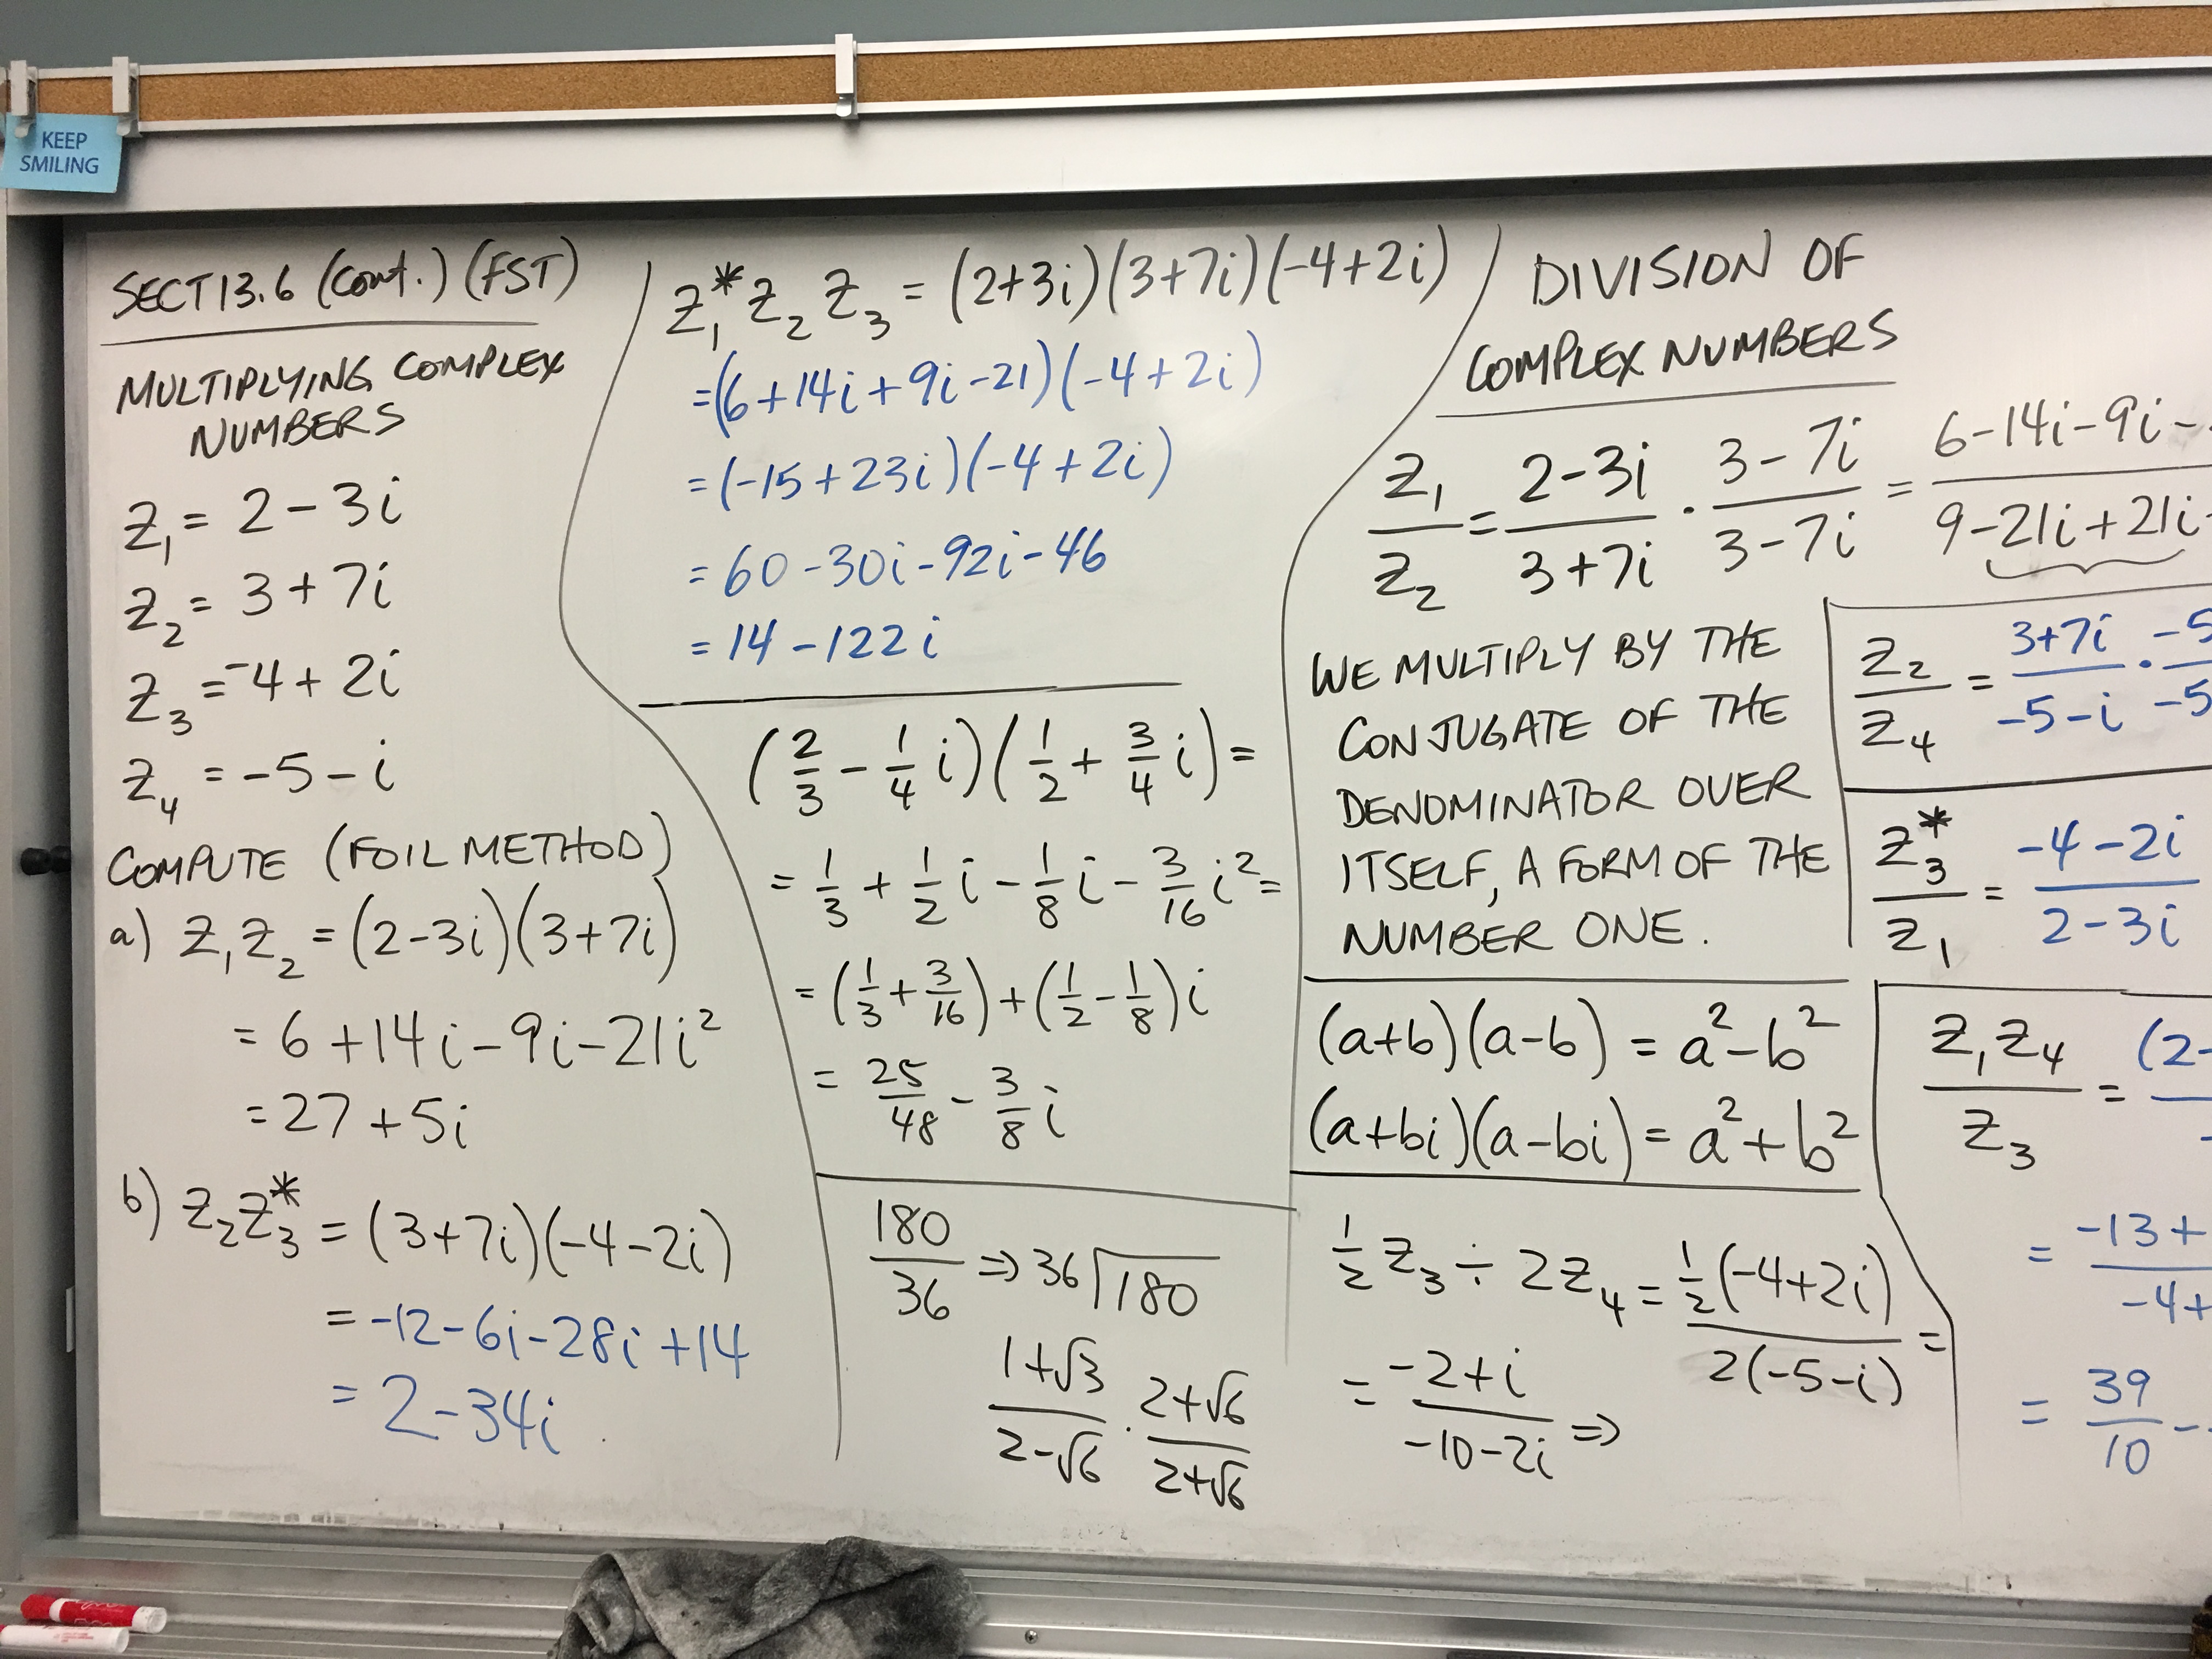 KEEP
SMILING
SECT 13.6 (cont.) (FST)
MULTIPLYING COMPLEX
NUMBERS
Z₁ = 2 - 3i
Z₂ = 3 + 7i
Z₃ = -4 + 2i
Z₄ = -5 - i
COMPUTE (FOIL METHOD)
a) Z₁Z₂ = (2-3i)(3+7i)
= 6 + 14i - 9i - 21i²
= 27 + 5i
b) Z₂Z₃* = (3+7i)(-4-2i)
= -12 - 6i - 28i + 14
= 2 - 34i
Z₁* Z₂ Z₃ = (2+3i)(3+7i)(-4+2i)
= (6+14i+9i-21)(-4+2i)
= (-15+23i)(-4+2i)
= 60 - 30i - 92i - 46
= 14 - 122i
(2/3 - 1/4 i)(1/2 + 3/4 i) =
= 1/3 + 1/2 i - 1/8 i - 3/16 i² =
= (1/3 + 3/16) + (1/2 - 1/8)i
= 25/48 - 3/8 i
180/36 ⇒ 36⟌180
(1+√3)/(2-√6) · (2+√6)/(2+√6)
DIVISION OF
COMPLEX NUMBERS
Z₁/Z₂ = (2-3i)/(3+7i) · (3-7i)/(3-7i) = 6-14i-9i- / 9-21i+21i
WE MULTIPLY BY THE
CONJUGATE OF THE
DENOMINATOR OVER
ITSELF, A FORM OF THE
NUMBER ONE.
(a+b)(a-b) = a²-b²
(a+bi)(a-bi) = a²+b²
1/2 Z₃ ÷ 2Z₄ = 1/2(-4+2i) / 2(-5-i) =
= (-2+i)/(-10-2i) ⇒
Z₂/Z₄ = (3+7i)/(-5-i) · -5/-5
Z₃*/Z₁ = (-4-2i)/(2-3i)
Z₁Z₄/Z₃ = (2-
= -13+ / -4+
= 39/10 -